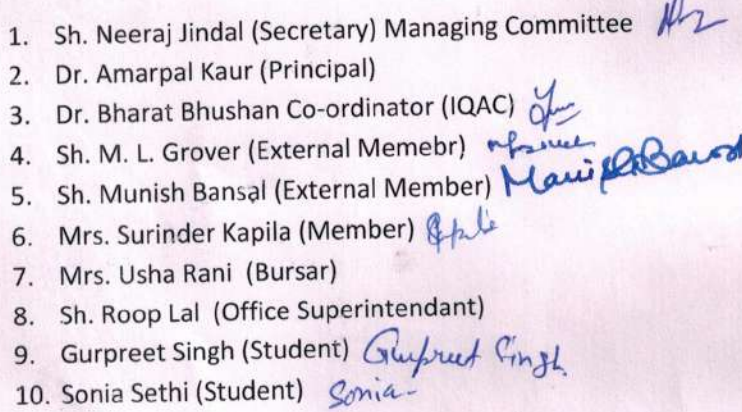 1. Sh. Neeraj Jindal (Secretary) Managing Committee
2. Dr. Amarpal Kaur (Principal)
3. Dr. Bharat Bhushan Co-ordinator (IQAC)
4. Sh. M. L. Grover (External Memebr)
5. Sh. Munish Bansal (External Member)
6. Mrs. Surinder Kapila (Member)
7. Mrs. Usha Rani (Bursar)
8. Sh. Roop Lal (Office Superintendant)
9. Gurpreet Singh (Student) Gurpreet Singh
10. Sonia Sethi (Student) Sonia